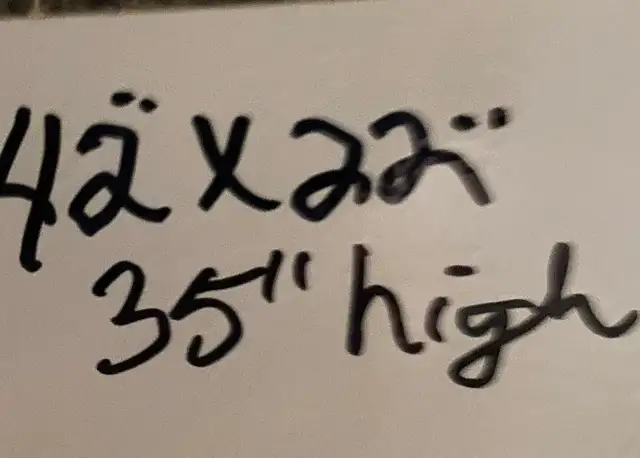 42" x 22"
35" high